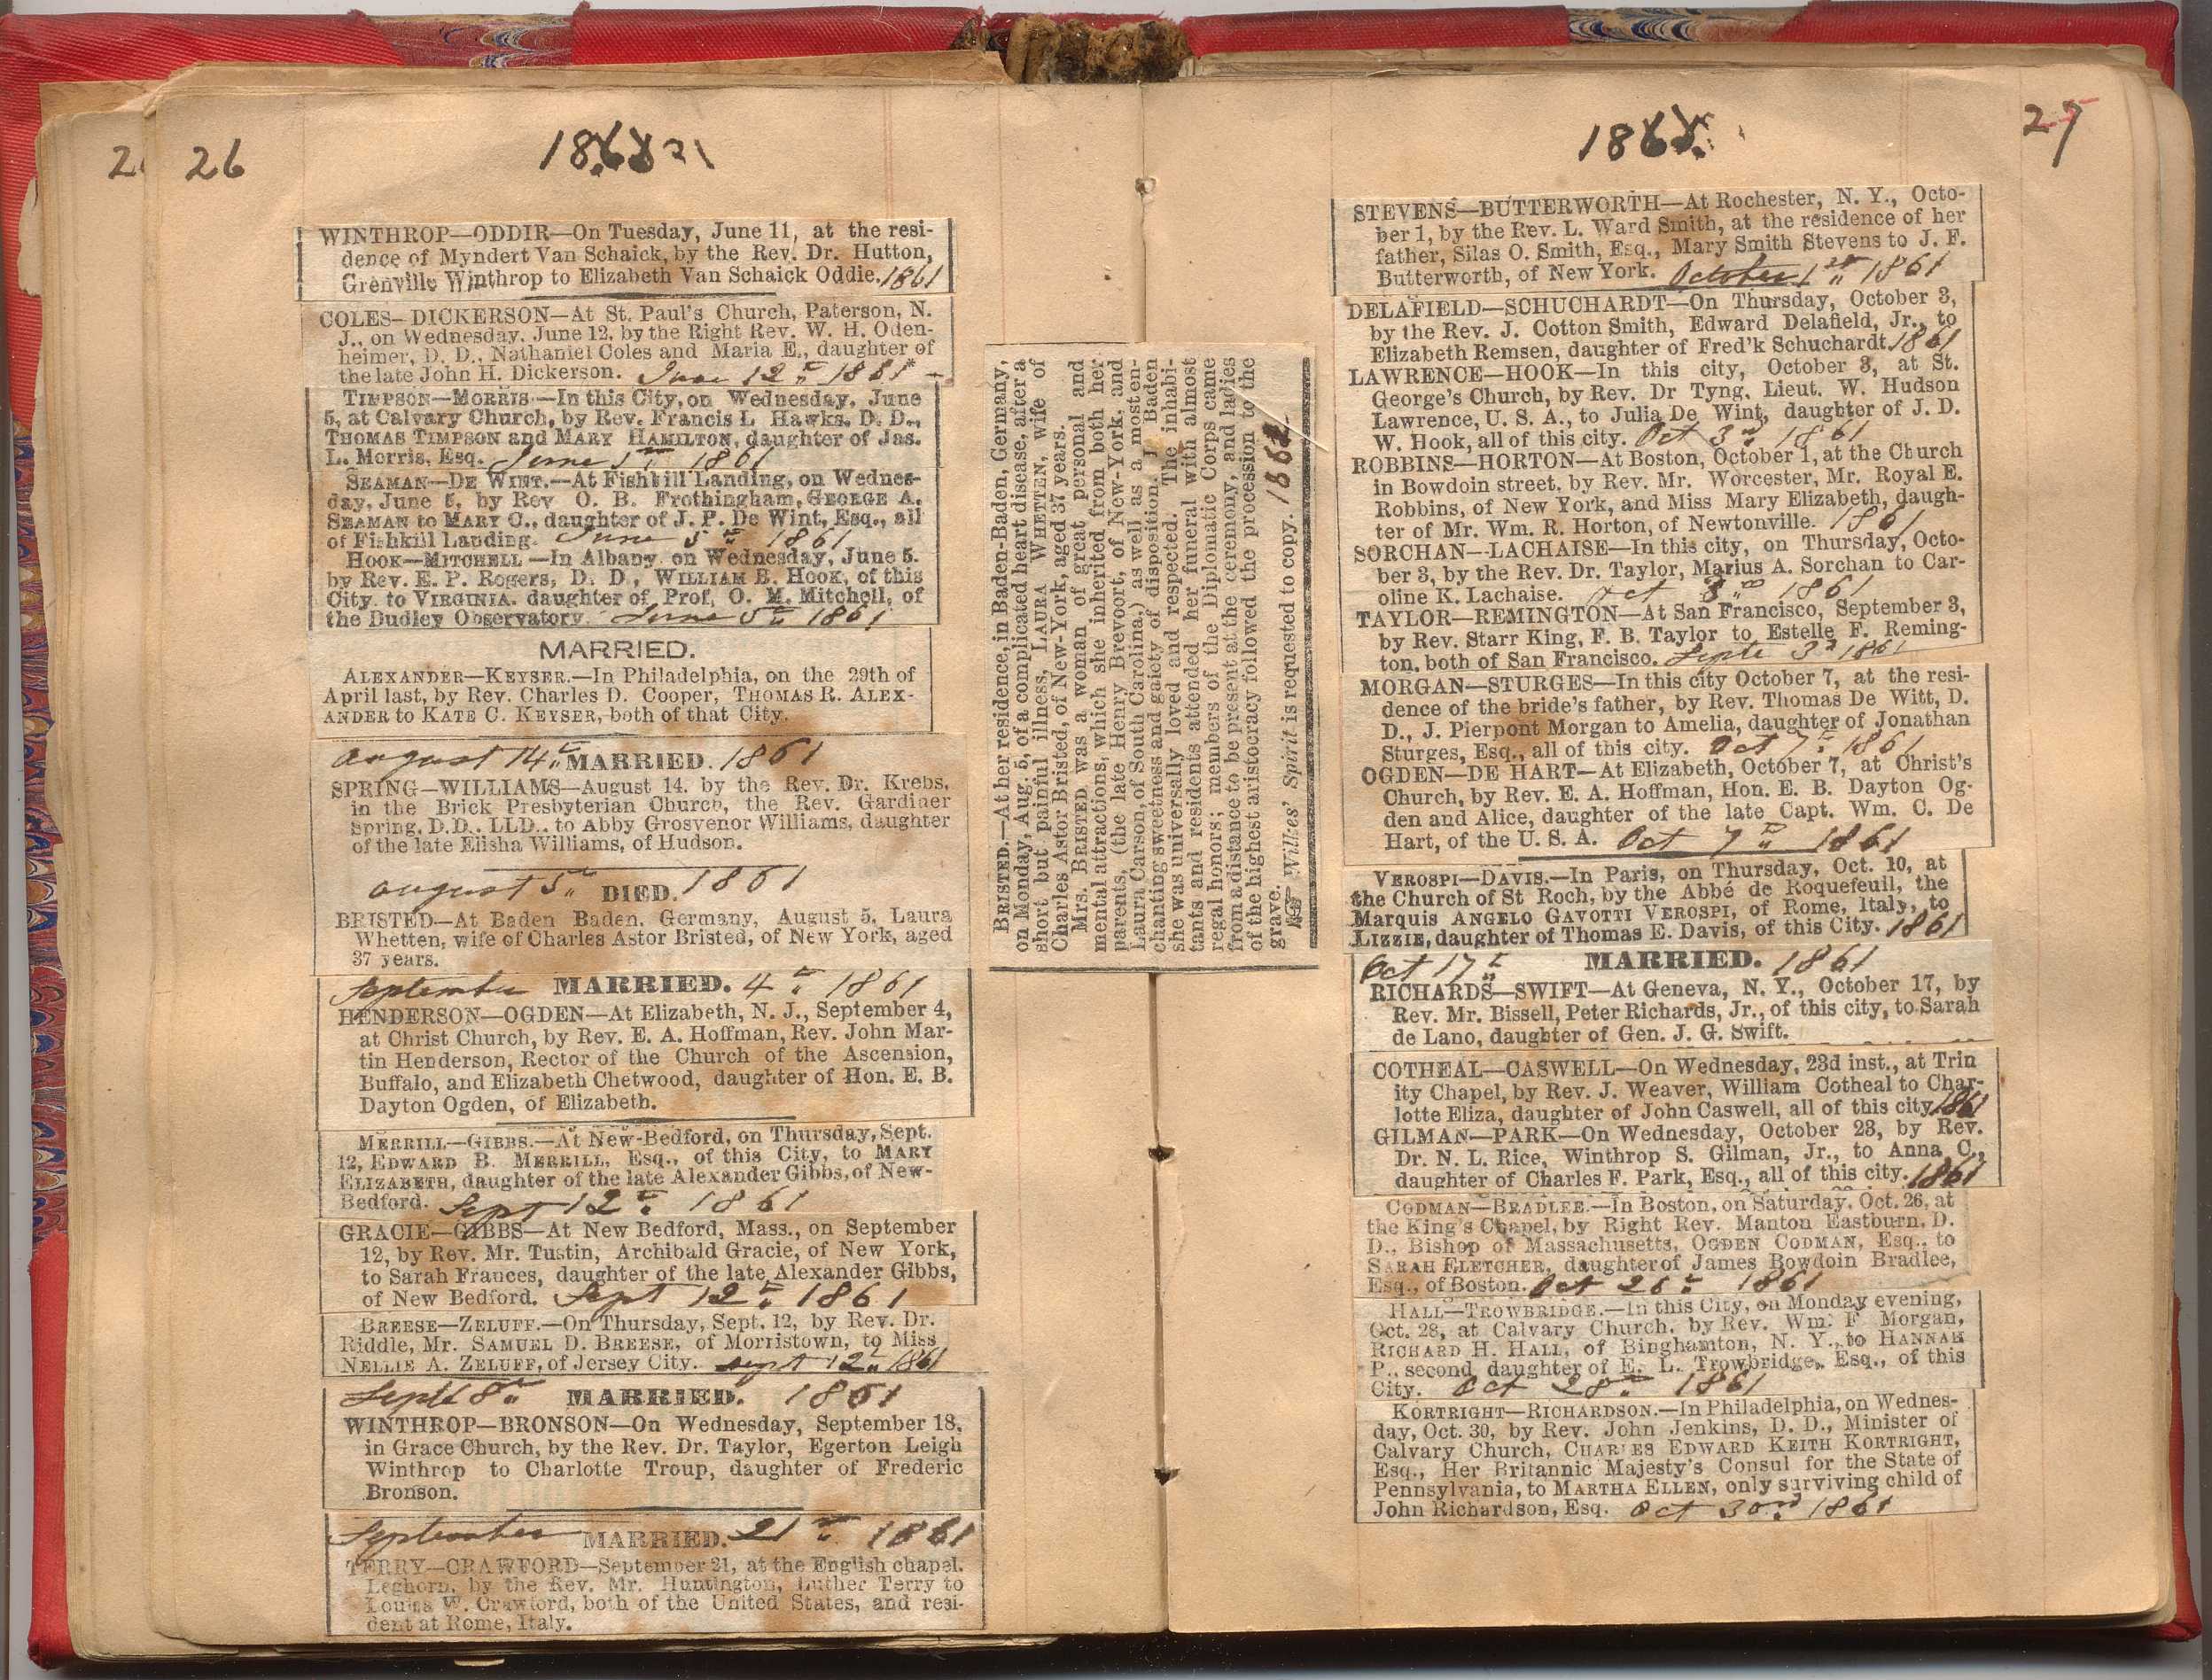 26
WINTHROP—ODDIR—On Tuesday, June 11, at the resi-
dence of Myndert Van Schaick, by the Rev. Dr. Hutton,
Grenville Winthrop to Elizabeth Van Schaick Oddie. 1861
COLES—DICKERSON—At St. Paul's Church, Paterson, N.
J., on Wednesday, June 12, by the Right Rev. W. H. Oden-
heimer, D. D., Nathaniel Coles and Maria E., daughter of
the late John H. Dickerson. June 12th 1861
TIMPSON—MORRIS.—In this City, on Wednesday, June
5, at Calvary Church, by Rev. Francis L Hawks, D. D.,
THOMAS TIMPSON and MARY HAMILTON, daughter of Jas.
L. Morris, Esq. June 5th 1861
SEAMAN—DE WINT.—At Fishkill Landing, on Wednes-
day, June 5, by Rev O. B. Frothingham, GEORGE A.
SEAMAN to MARY C., daughter of J. P. De Wint, Esq., all
of Fishkill Landing. June 5th 1861
HOOK—MITCHELL—In Albany, on Wednesday, June 5.
by Rev. E. P. Rogers, D. D., WILLIAM B. HOOK, of this
City, to VIRGINIA, daughter of Prof. O. M. Mitchell, of
the Dudley Observatory. June 5th 1861
MARRIED.
ALEXANDER—KEYSER.—In Philadelphia, on the 29th of
April last, by Rev. Charles D. Cooper, THOMAS R. ALEX-
ANDER to KATE C. KEYSER, both of that City.
August 14th MARRIED. 1861
SPRING—WILLIAMS—August 14, by the Rev. Dr. Krebs,
in the Brick Presbyterian Church, the Rev. Gardiner
Spring, D.D., LLD., to Abby Grosvenor Williams, daughter
of the late Elisha Williams, of Hudson.
August 5th DIED. 1861
BRISTED—At Baden Baden, Germany, August 5, Laura
Whetten, wife of Charles Astor Bristed, of New York, aged
37 years.
September MARRIED. 4th 1861
HENDERSON—OGDEN—At Elizabeth, N. J., September 4,
at Christ Church, by Rev. E. A. Hoffman, Rev. John Mar-
tin Henderson, Rector of the Church of the Ascension,
Buffalo, and Elizabeth Chetwood, daughter of Hon. E. B.
Dayton Ogden, of Elizabeth.
MERRILL—GIBBS.—At New-Bedford, on Thursday, Sept.
12, EDWARD B. MERRILL, Esq., of this City, to MARY
ELIZABETH, daughter of the late Alexander Gibbs, of New-
Bedford. Sept 12th 1861
GRACIE—GIBBS—At New Bedford, Mass., on September
12, by Rev. Mr. Tustin, Archibald Gracie, of New York,
to Sarah Frances, daughter of the late Alexander Gibbs,
of New Bedford. Sept 12th 1861
BREESE—ZELUFF.—On Thursday, Sept. 12, by Rev. Dr.
Riddle, Mr. SAMUEL D. BREESE, of Morristown, to Miss
NELLIE A. ZELUFF, of Jersey City. Sept 12th 1861
MARRIED. 1861
WINTHROP—BRONSON—On Wednesday, September 18,
in Grace Church, by the Rev. Dr. Taylor, Egerton Leigh
Winthrop to Charlotte Troup, daughter of Frederic
Bronson.
September MARRIED. 21st 1861
TERRY—CRAWFORD—September 21, at the English chapel,
Leghorn, by the Rev. Mr. Huntington, Luther Terry to
Louisa W. Crawford, both of the United States, and resi-
dent at Rome, Italy.
BRISTED.—At her residence, in Baden-Baden, Germany,
on Monday, Aug. 5, of a complicated heart disease, after a
short but painful illness, LAURA WHETTEN, wife of
Charles Astor Bristed, of New-York, aged 37 years.
Mrs. BRISTED was a woman of great personal and
mental attractions, which she inherited from both her
parents, (the late Henry Brevoort, of New-York, and
Laura Carson, of South Carolina,) as well as a most en-
chanting sweetness and gaiety of disposition. I Baden
she was universally loved and respected. The inhabi-
tants and residents attended her funeral with almost
regal honors; members of the Diplomatic Corps came
from a distance to be present at the ceremony, and ladies
of the highest aristocracy followed the procession to the
grave.
Wilkes' Spirit is requested to copy.
27
STEVENS—BUTTERWORTH—At Rochester, N. Y., Octo-
ber 1, by the Rev. L. Ward Smith, at the residence of her
father, Silas O. Smith, Esq., Mary Smith Stevens to J. F.
Butterworth, of New York. October 1st 1861
DELAFIELD—SCHUCHARDT—On Thursday, October 3,
by the Rev. J. Cotton Smith, Edward Delafield, Jr., to
Elizabeth Remsen, daughter of Fred'k Schuchardt. 1861
LAWRENCE—HOOK—In this city, October 3, at St.
George's Church, by Rev. Dr Tyng, Lieut. W. Hudson
Lawrence, U. S. A., to Julia De Wint, daughter of J. D.
W. Hook, all of this city. Oct 3rd 1861
ROBBINS—HORTON—At Boston, October 1, at the Church
in Bowdoin street, by Rev. Mr. Worcester, Mr. Royal E.
Robbins, of New York, and Miss Mary Elizabeth, daugh-
ter of Mr. Wm. R. Horton, of Newtonville. 1861
SORCHAN—LACHAISE—In this city, on Thursday, Octo-
ber 3, by the Rev. Dr. Taylor, Marius A. Sorchan to Car-
oline K. Lachaise. Oct 3rd 1861
TAYLOR—REMINGTON—At San Francisco, September 3,
by Rev. Starr King, F. B. Taylor to Estelle F. Reming-
ton, both of San Francisco. Septe 3d 1861
MORGAN—STURGES—In this city October 7, at the resi-
dence of the bride's father, by Rev. Thomas De Witt, D.
D., J. Pierpont Morgan to Amelia, daughter of Jonathan
Sturges, Esq., all of this city. Oct 7th 1861
OGDEN—DE HART—At Elizabeth, October 7, at Christ's
Church, by Rev. E. A. Hoffman, Hon. E. B. Dayton Og-
den and Alice, daughter of the late Capt. Wm. C. De
Hart, of the U. S. A. Oct 7th 1861
VEROSPI—DAVIS.—In Paris, on Thursday, Oct. 10, at
the Church of St Roch, by the Abbé de Roquefeuil, the
Marquis ANGELO GAVOTTI VEROSPI, of Rome, Italy, to
LIZZIE, daughter of Thomas E. Davis, of this City. 1861
Oct 17th MARRIED. 1861
RICHARDS—SWIFT—At Geneva, N. Y., October 17, by
Rev. Mr. Bissell, Peter Richards, Jr., of this city, to Sarah
de Lano, daughter of Gen. J. G. Swift.
COTHEAL—CASWELL—On Wednesday, 23d inst., at Trin
ity Chapel, by Rev. J. Weaver, William Cotheal to Char-
lotte Eliza, daughter of John Caswell, all of this city. 1861
GILMAN—PARK—On Wednesday, October 23, by Rev.
Dr. N. L. Rice, Winthrop S. Gilman, Jr., to Anna C.,
daughter of Charles F. Park, Esq., all of this city. 1861
CODMAN—BRADLEE.—In Boston, on Saturday, Oct. 26, at
the King's Chapel, by Right Rev. Manton Eastburn, D.
D., Bishop of Massachusetts, OGDEN CODMAN, Esq., to
SARAH FLETCHER, daughter of James Bowdoin Bradlee,
Esq., of Boston. Oct 26th 1861
HALL—TROWBRIDGE.—In this City, on Monday evening,
Oct. 28, at Calvary Church, by Rev. Wm. F Morgan,
RICHARD H. HALL, of Binghamton, N. Y., to HANNAH
P., second daughter of E. L. Trowbridge, Esq., of this
City. Oct 28th 1861
KORTRIGHT—RICHARDSON.—In Philadelphia, on Wednes-
day, Oct. 30, by Rev. John Jenkins, D. D., Minister of
Calvary Church, CHARLES EDWARD KEITH KORTRIGHT,
Esq., Her Britannic Majesty's Consul for the State of
Pennsylvania, to MARTHA ELLEN, only surviving child of
John Richardson, Esq. Oct 30th 1861